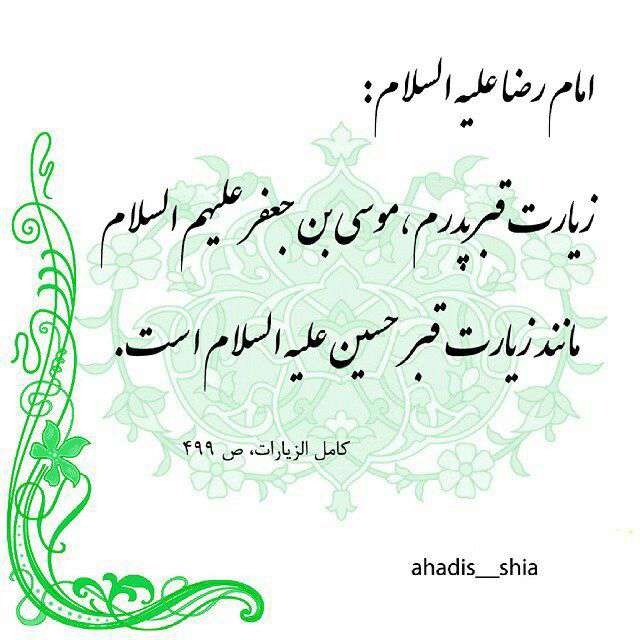 امام رضا علیه السلام:
زیارت قبر پدرم، موسی بن جعفر علیهم السلام
مانند زیارت قبر حسین علیه السلام است.
کامل الزیارات، ص ۴۹۹
ahadis__shia